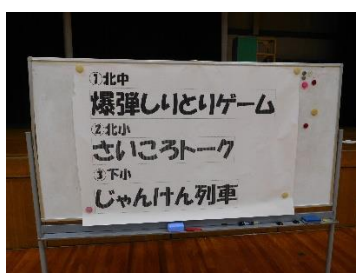 ①北中
爆弾しりとりゲーム
②北小
さいころトーク
③下小
じゃんけん列車